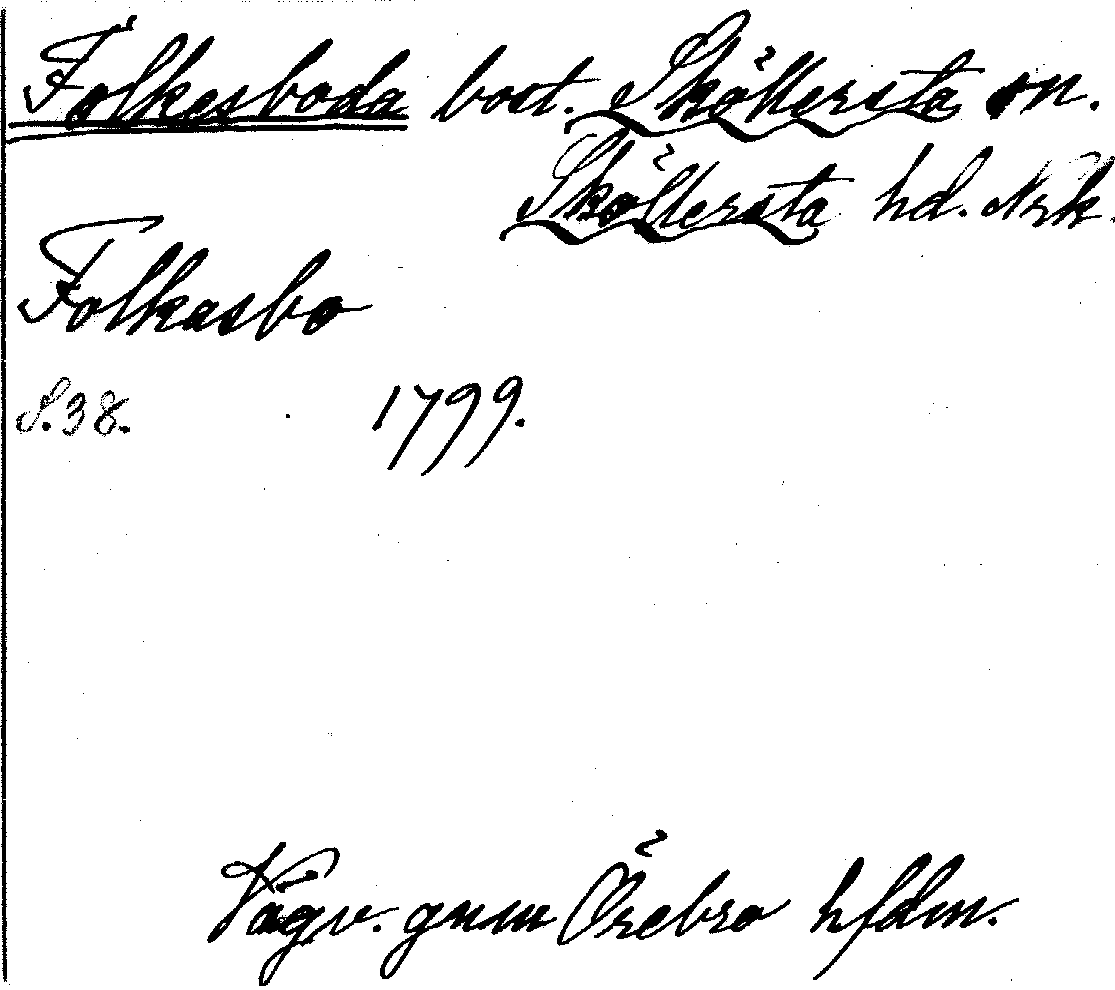 Folkesboda bost. Sköllersta sn.
Sköllersta hd. Nrk.
Folkasbo
S.38. 1799.
Vägv. gnm Örebro hfdm.